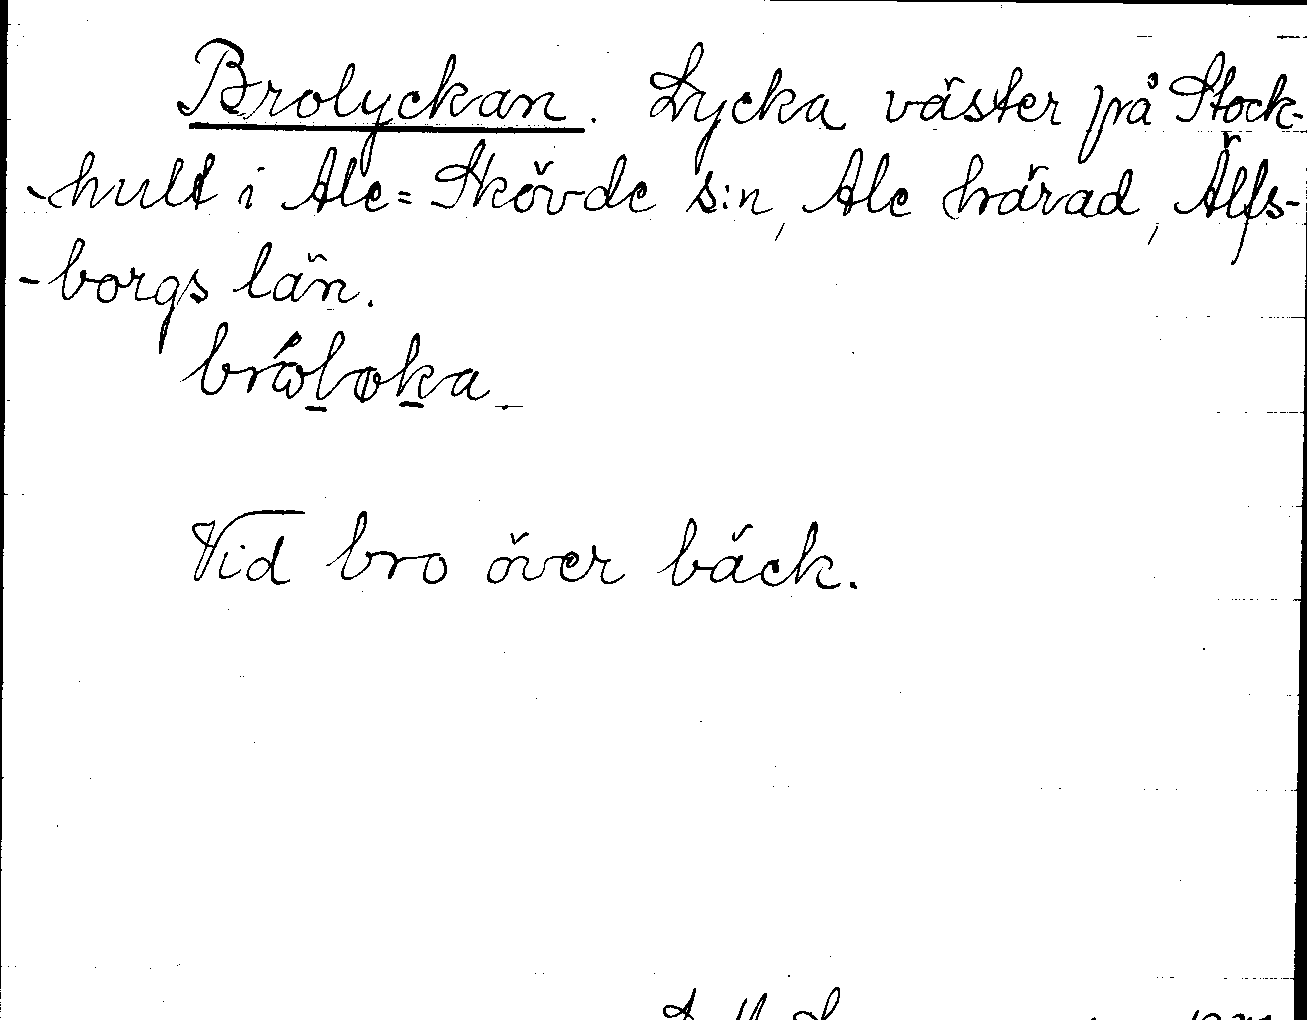 Brolyckan. Lycka väster på Stock-
-hult i Ale=Skövde s:n, Ale härad, Älfs-
-borgs län.
Vid bro över bäck.